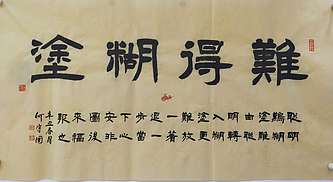 難得糊塗
聰明
難糊
塗難
由聰
明轉
入糊
塗更
難放
一著
退一
步當
下心
安非
圖後
來福
報也
辛丑春月